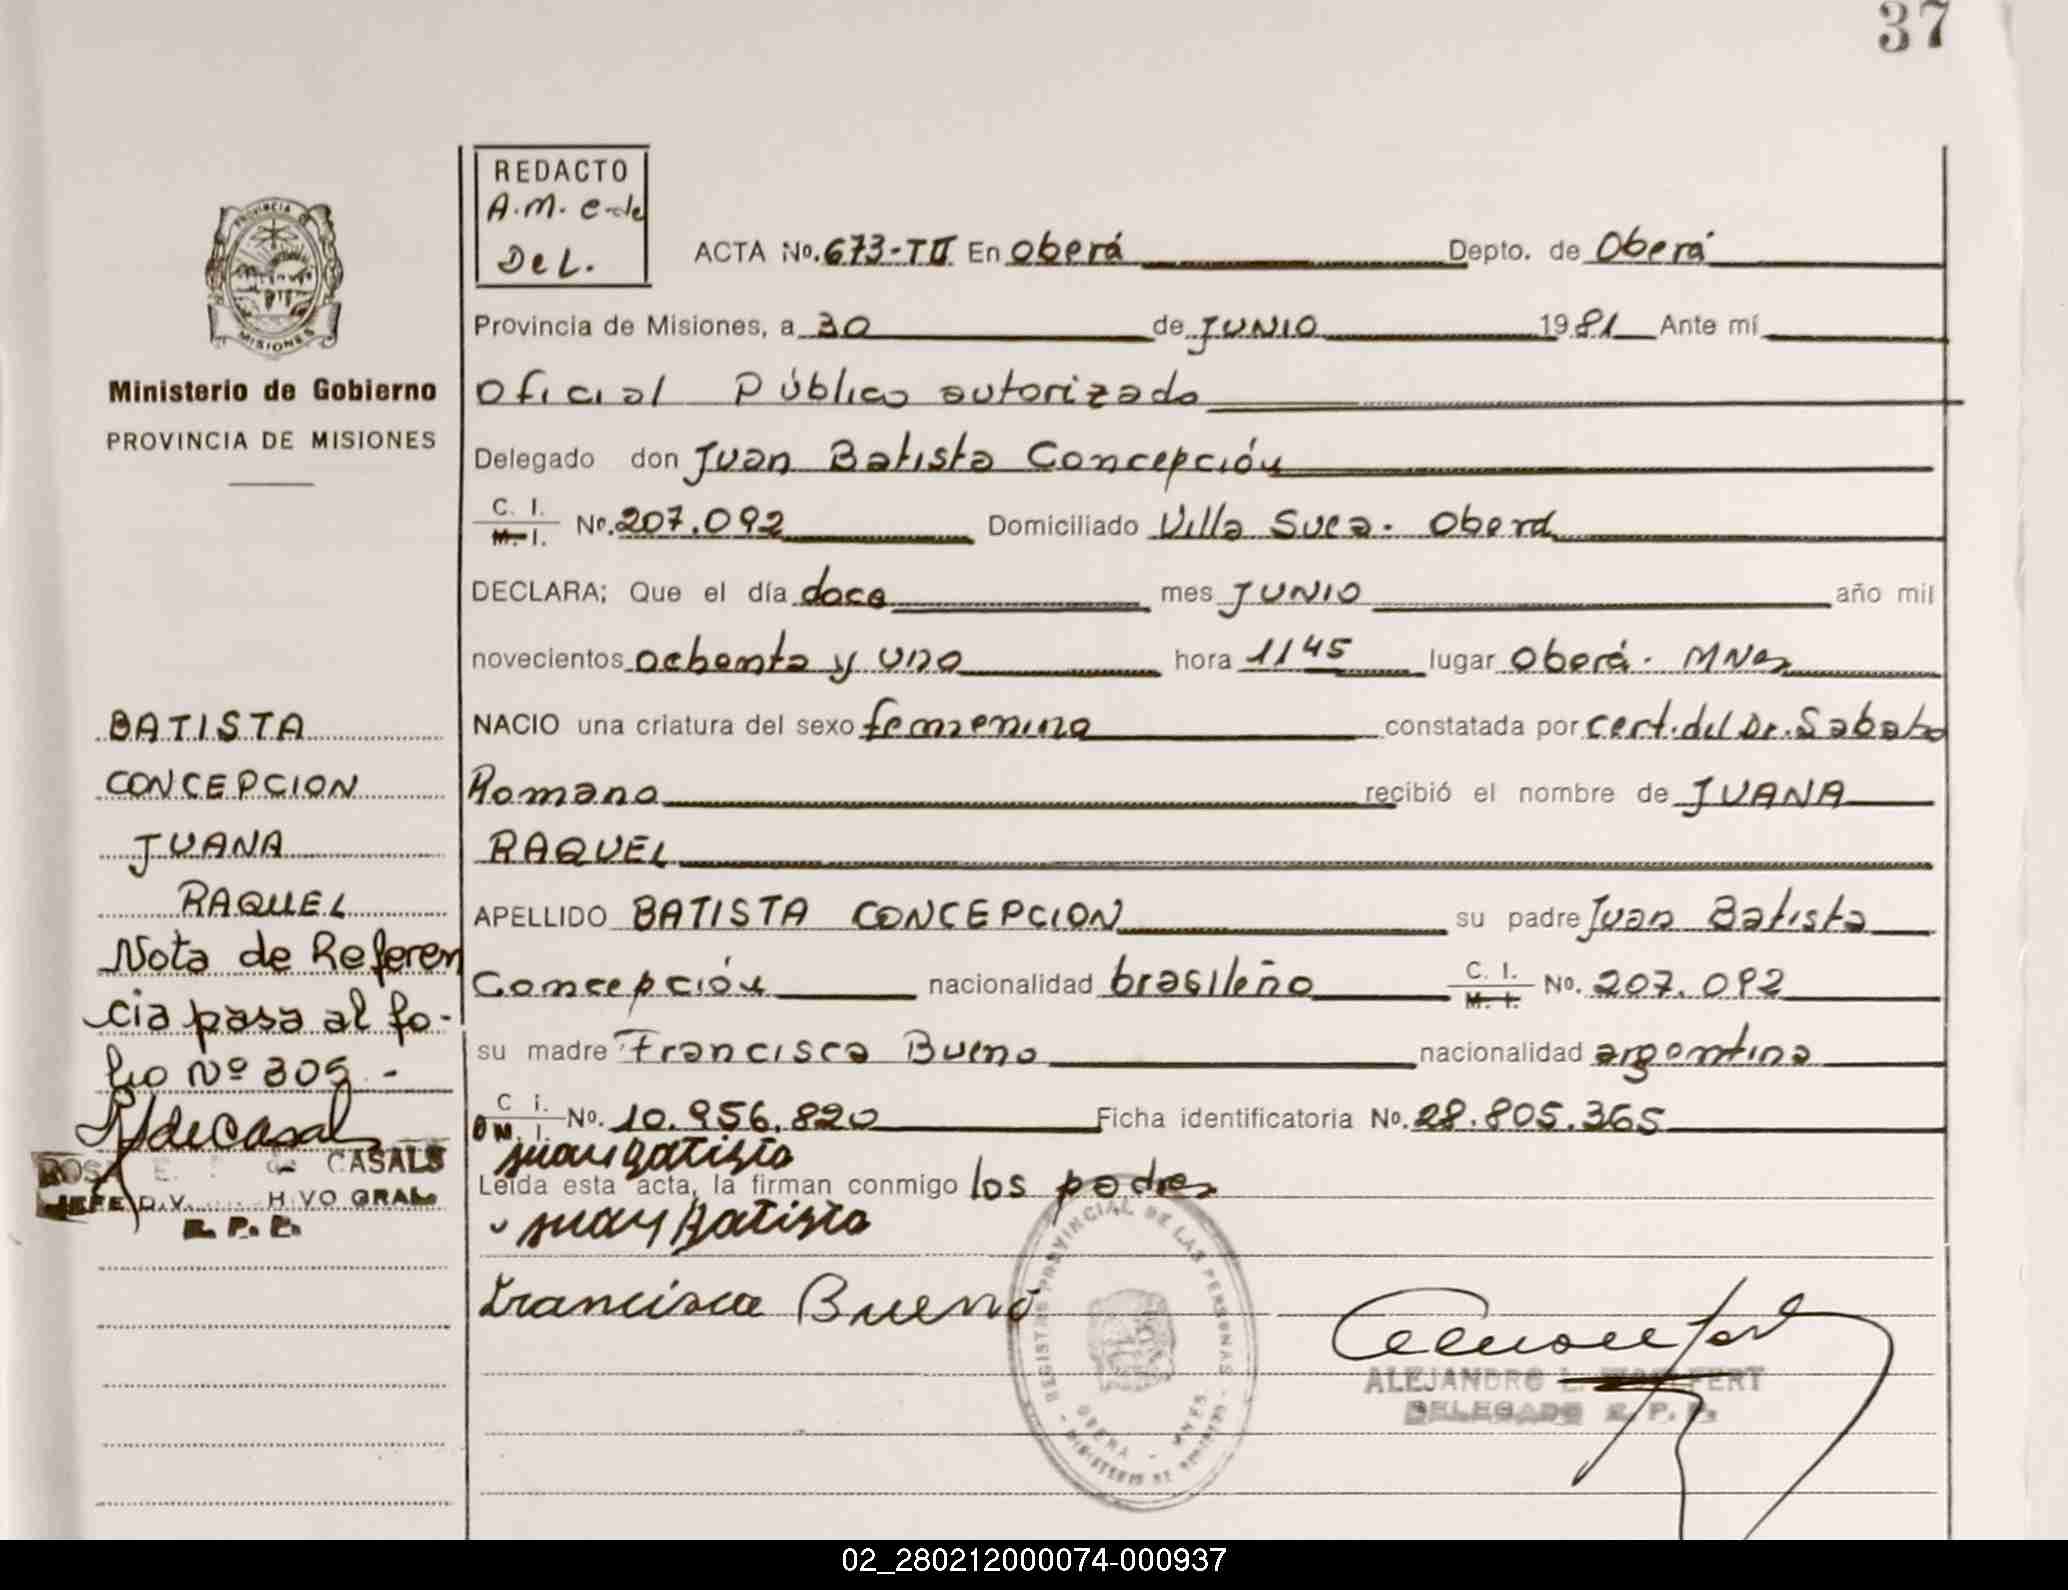 37
REDACTO
A.M. e-de
DeL.
ACTA No. 673-TII En Oberá Depto. de Oberá
Provincia de Misiones, a 30 de JUNIO 1981 Ante mí
Oficial Público autorizado
Delegado don Juan Batista Concepción
C. I.
M. I. No. 207.092 Domiciliado Villa Suea. Oberá
DECLARA; Que el día doce mes JUNIO año mil
novecientos ochenta y uno hora 11 45 lugar Oberá. MNes
NACIO una criatura del sexo femenino constatada por cert. del Dr. Sabato
Romano recibió el nombre de JUANA
RAQUEL
APELLIDO BATISTA CONCEPCION su padre Juan Batista
Concepción nacionalidad brasileño C. I.
M. I. No. 207.092
su madre Francisca Bueno nacionalidad argentina
C I.
M. I. No. 10.956.820 Ficha identificatoria No. 28.805.365
Juan Batista
Leída esta acta, la firman conmigo los padres
Juan Batista
Francisca Bueno
PROVINCIA DE
MISIONES
Ministerio de Gobierno
PROVINCIA DE MISIONES
BATISTA
CONCEPCION
JUANA
RAQUEL
Nota de Referen
cia pasa al fo-
lio Nº 305.-
CASALS
JEFE DIV. H.VO GRAL.
R. P. P.
REGISTRO PROVINCIAL DE LAS PERSONAS
OBERA - MNES
MINISTERIO DE GOBIERNO
ALEJANDRO L. FERT
DELEGADO R. P. P.
02_280212000074-000937